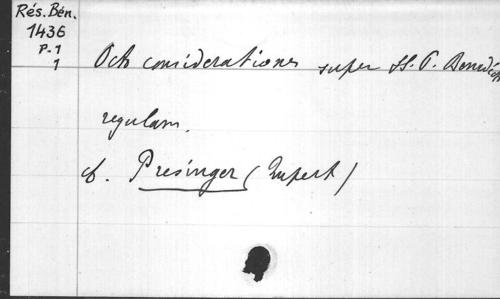 Rés. Bén.
1436
P.1
1
Octo considerationes super SS. P. Benedicti
regulam.
cf. Presinger (Rupert)